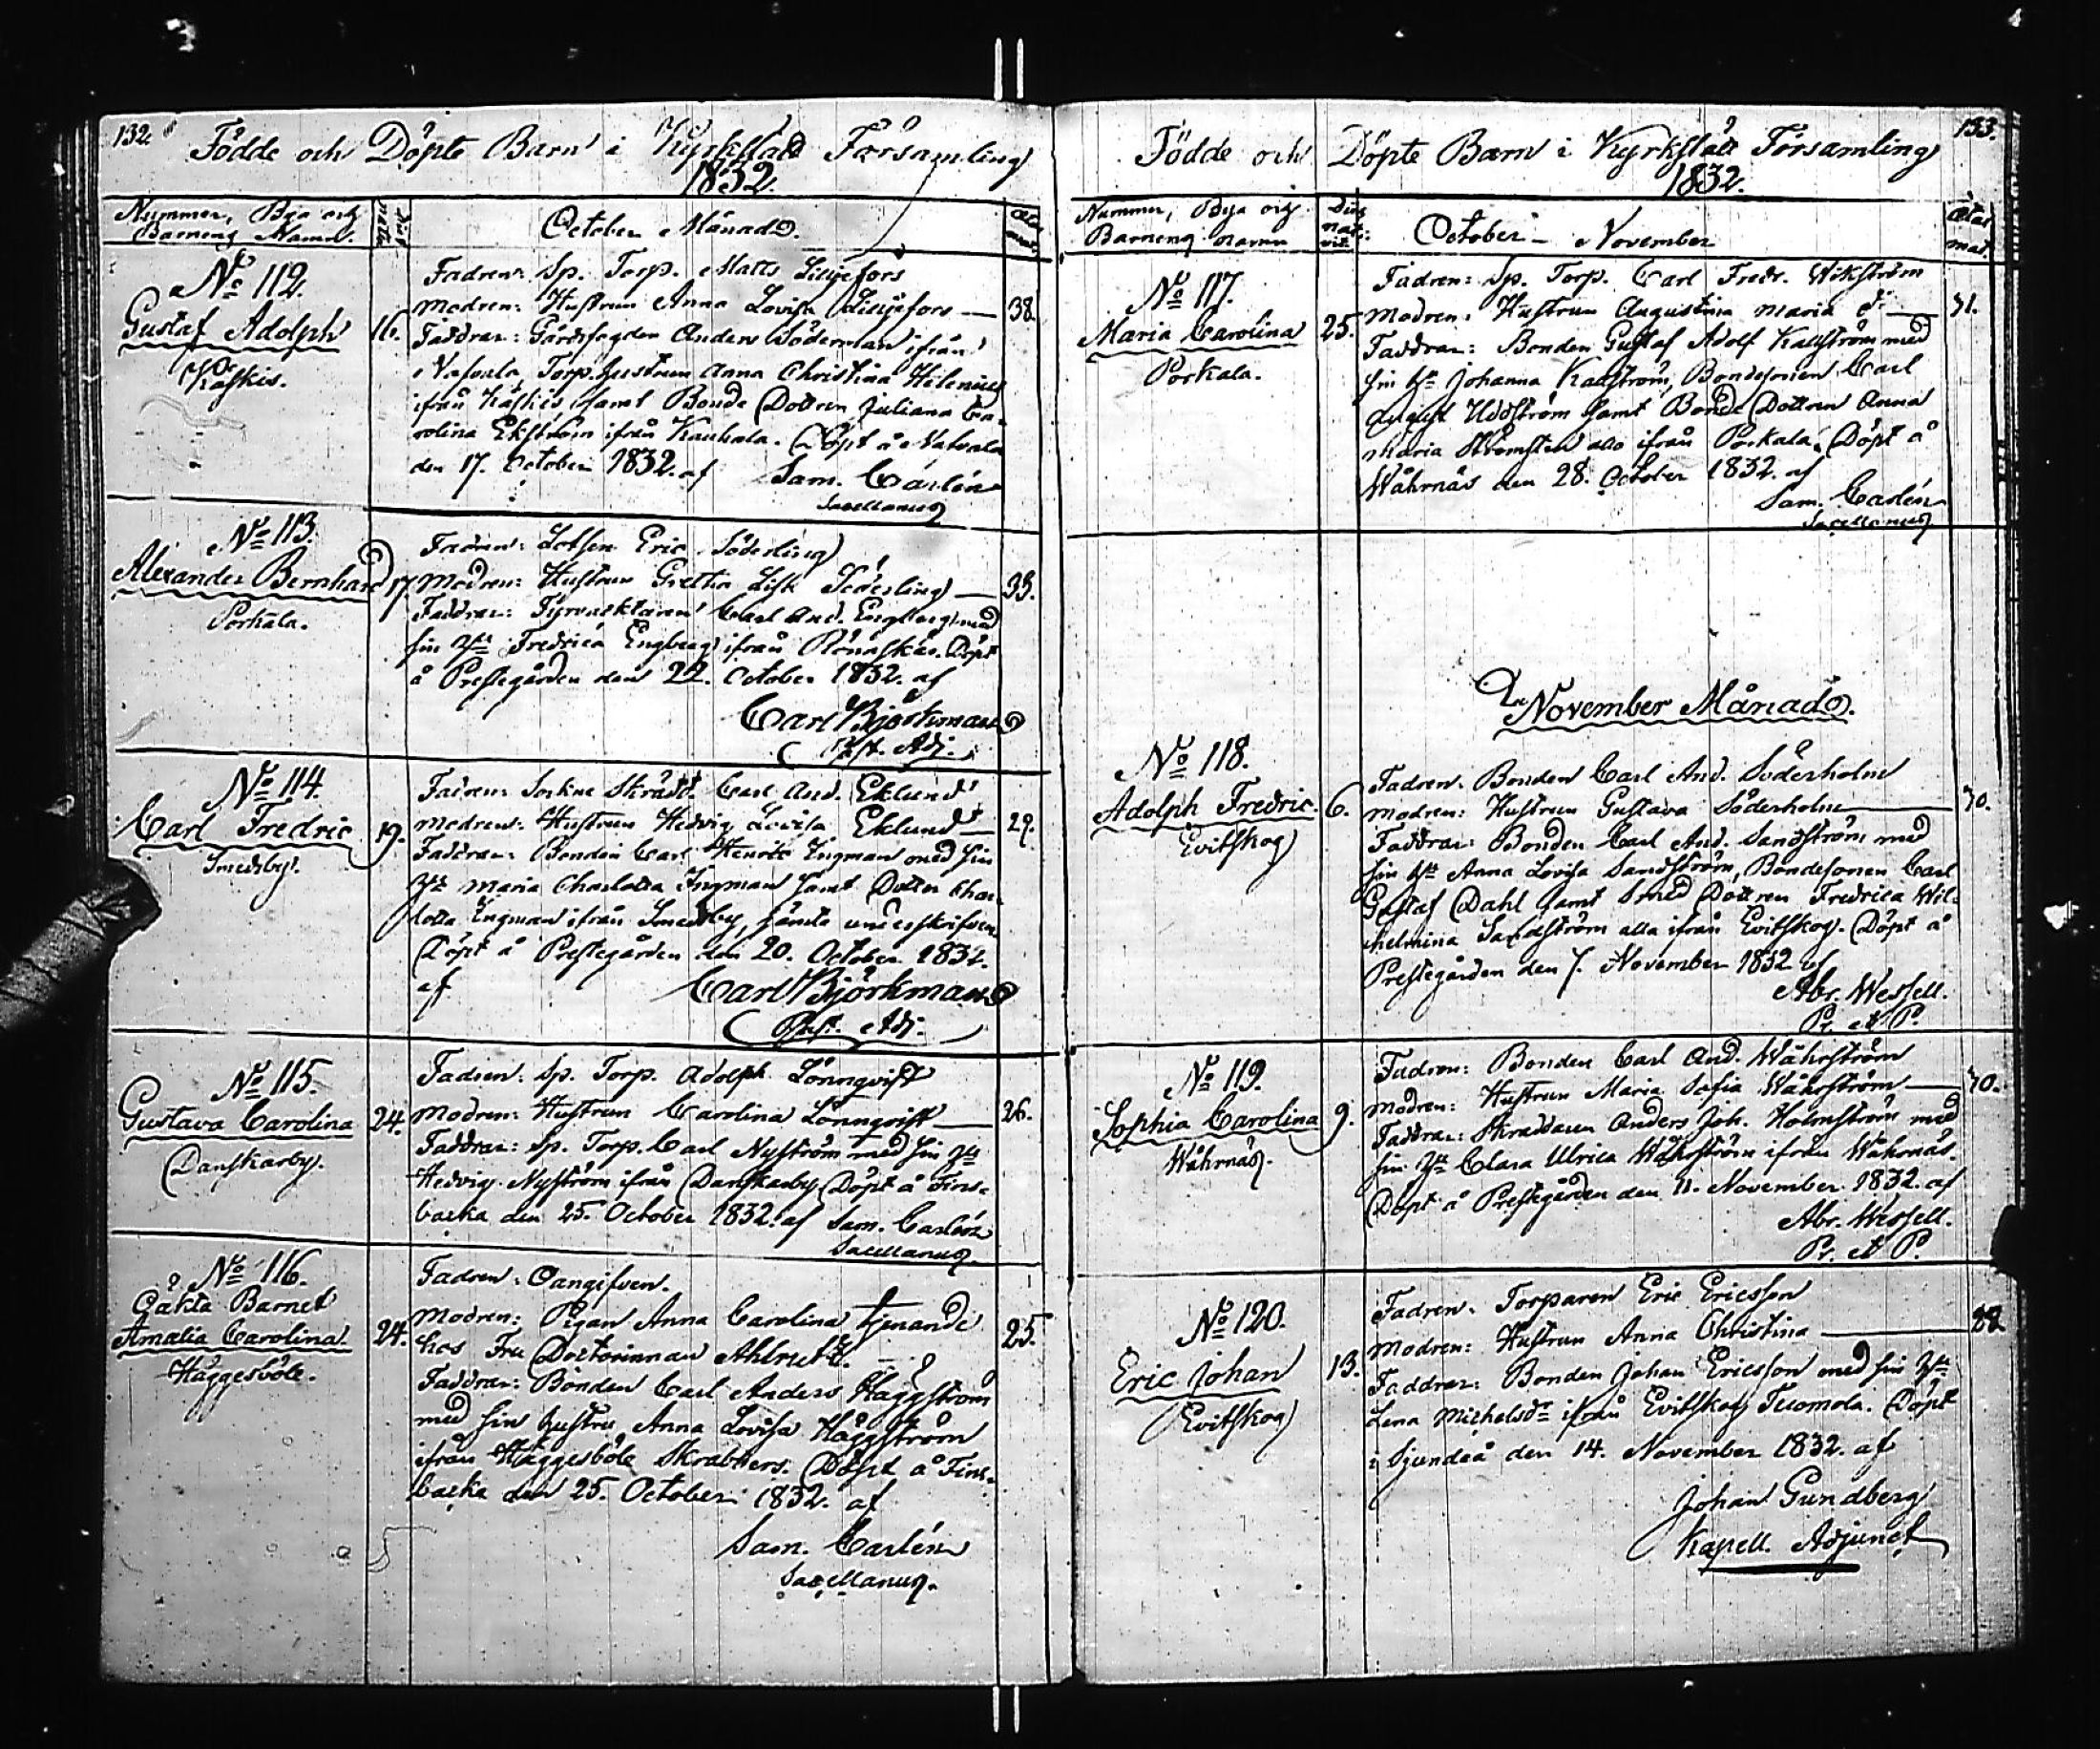 132
Födde och Döpte Barn i Kyrkslätt Församling
1832.
Nummer, Bya och Barnens Namn.
October Månad.
No 112.
Gustaf Adolph
16.
Käskis.
Fadren: Sp. Torp. Matts Liljefors
Modren: Hustrun Anna Lovisa Liljefors — 38.
Faddrar: Gårdsfogden Anders Söderman ifrån
Torp. hustrun Anna Christina Helenius
ifrån Käskis samt Bonde Dottren Juliana Ca-
rolina Ekström ifrån Kauhala. Döpt å
den 17. October 1832. af Sam. Carlén
Sacellanus
No 113.
Alexander Bernhard
17.
Porkala.
Fadren: Lotsen Eric Söderling
Modren: Hustrun Gretha Lisk Söderling — 33.
Faddrar: Fyrvacktaren Carl And. Engberg med
sin Hu Fredrica Engberg ifrån Rönnskär. Döpt
å Prestegården den 22. October 1832. af
Carl Björkman
Past. Adj.
No 114.
Carl Fredric
19.
Smedsby.
Fadren: Sockne Skrädd. Carl And. Eklund
Modren: Hustrun Hedvig Lovisa Eklund — 29.
Faddrar: Bonden Carl Henric Ingman med sin
Hu Maria Charlotta Ingman samt Dotter Char-
lotta Ingman ifrån Smedsby, jämte underskrifven
Döpt å Prestegården den 20. October 1832.
af Carl Björkman
Past. Adj.
No 115.
Gustava Carolina
24.
Danskarby.
Fadren: Sp. Torp. Adolph Lönnqvist
Modren: Hustrun Carolina Lönnqvist — 26.
Faddrar: Sp. Torp. Carl Nyström med sin Hu
Hedvig Nyström ifrån Danskarby Döpt å Fins-
backa den 25. October 1832. af Sam. Carlén
Sacellanus
No 116.
Oäkta Barnet
Amalia Carolina
24.
Häggesböle.
Fadren: Oangifven.
Modren: Pigan Anna Carolina tjenande
hos Fru Doctorinnan — 25.
Faddrar: Bonden Carl Anders Häggström
med sin hustru Anna Lovisa Häggström
ifrån Häggesböle Skrabbers. Döpt å Fins-
backa den 25. October 1832. af
Sam. Carlén
Sacellanus.
133.
Födde och Döpte Barn i Kyrkslätt Församling
1832.
Nummer, Bya och Barnens namn
October — November
No 117.
Maria Carolina
25.
Porkala.
Fadren: Sp. Torp. Carl Fredr. Wikström
Modren: Hustrun Augustina Maria do — 31.
Faddrar: Bonden Gustaf Adolf Kallström med
sin Hu Johanna Kallström, Bondesonen Carl
August Uddström samt Bonde Dottren Anna
Maria Strömsten alla ifrån Porkala. Döpt å
Wåhrnäs den 28. October 1832. af
Sam. Carlén
Sacellanus
November Månad.
No 118.
Adolph Fredric
6.
Evitskog
Fadren: Bonden Carl And. Söderholm
Modren: Hustrun Gustava Söderholm — 30.
Faddrar: Bonden Carl And. Sandström med
sin Hu Anna Lovisa Sandström, Bondesonen Carl
Gustaf Dahl samt Smed Dottren Fredrica Wil-
helmina Sandström alla ifrån Evitskog. Döpt å
Prestegården den 7. November 1832 af
Abr. Wessell.
Pr. et P.
No 119.
Sophia Carolina
9.
Wåhrnäs.
Fadren: Bonden Carl And. Wåhrström
Modren: Hustrun Maria Sofia Wåhrström — 30.
Faddrar: Skräddaren Anders Joh. Holmström med
sin Hu Clara Ulrica Wåhrström ifrån Wåhrnäs.
Döpt å Prestegården den 11. November 1832. af
Abr. Wessell.
Pr. et P.
No 120.
Eric Johan
13.
Evitskog
Fadren: Torparen Eric Ericsson
Modren: Hustrun Anna Christina —
Faddrar: Bonden Johan Ericsson med sin Hu
Lena Michelsdr ifrån Evitskog Tuomola. Döpt
i Sjundeå den 14. November 1832. af
Johan Gundberg
Kapell. Adjunct